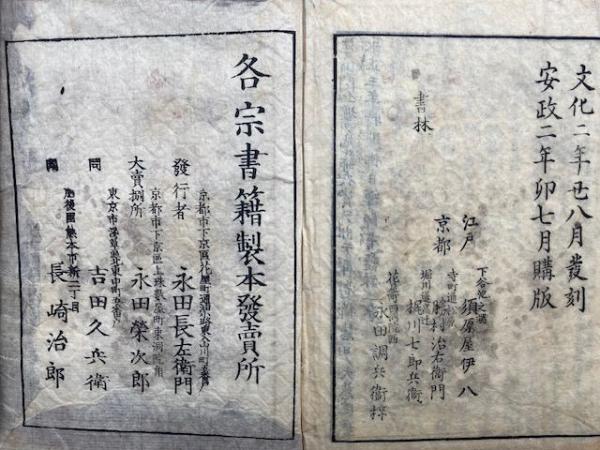 文化二年丑八月發刻
安政二年卯七月購版
書林
江戸
須原屋伊八
京都
勝村治右衛門
堀川通
梶川七郎兵衛
永田調兵衛梓
各宗書籍製本發賣所
京都市下京區花屋町通
發行者 永田長左衛門
京都市下京區上珠數屋町東洞院角
大賣捌所 永田榮次郎
東京市淺草區北東仲町五番戸
同 吉田久兵衛
肥後國熊本市新二丁目
同 長崎治郎